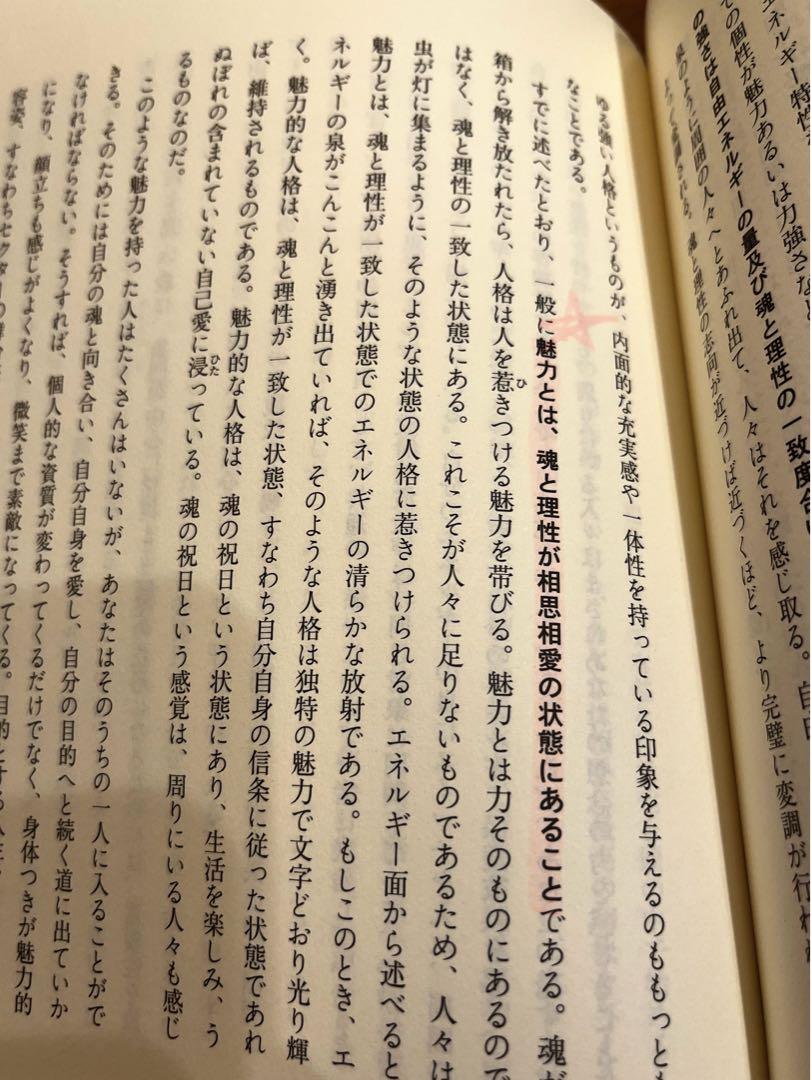 エネルギー特性が
ての個性が魅力あるいは力強さなと
の強さは自由エネルギーの量及び魂と理性の一致度合
泉のように周囲の人々へとあふれ出て、人々はそれを感じ取る。自由
よって変調される。魂と理性の志向が近づけば近づくほど、より完璧に変調が行われ
ゆる強い人格というものが、内面的な充実感や一体性を持っている印象を与えるのももっとも
なことである。
すでに述べたとおり、一般に魅力とは、魂と理性が相思相愛の状態にあることである。魂が
箱から解き放たれたら、人格は人を惹きつける魅力を帯びる。魅力とは力そのものにあるので
はなく、魂と理性の一致した状態にある。これこそが人々に足りないものであるため、人々は
虫が灯に集まるように、そのような状態の人格に惹きつけられる。エネルギー面から述べると
魅力とは、魂と理性が一致した状態でのエネルギーの清らかな放射である。もしこのとき、エ
ネルギーの泉がこんこんと湧き出ていれば、そのような人格は独特の魅力で文字どおり光り輝
く。魅力的な人格は、魂と理性が一致した状態、すなわち自分自身の信条に従った状態であれ
ば、維持されるものである。魅力的な人格は、魂の祝日という状態にあり、生活を楽しみ、う
ぬぼれの含まれていない自己愛に浸っている。魂の祝日という感覚は、周りにいる人々も感じ
るものなのだ。
このような魅力を持った人はたくさんはいないが、あなたはそのうちの一人に入ることがで
きる。そのためには自分の魂と向き合い、自分自身を愛し、自分の目的へと続く道に出ていか
なければならない。そうすれば、個人的な資質が変わってくるだけでなく、身体つきが魅力的
になり、顔立ちも感じがよくなり、微笑まで素敵になってくる。目的とする
容姿、すなわちセクターの